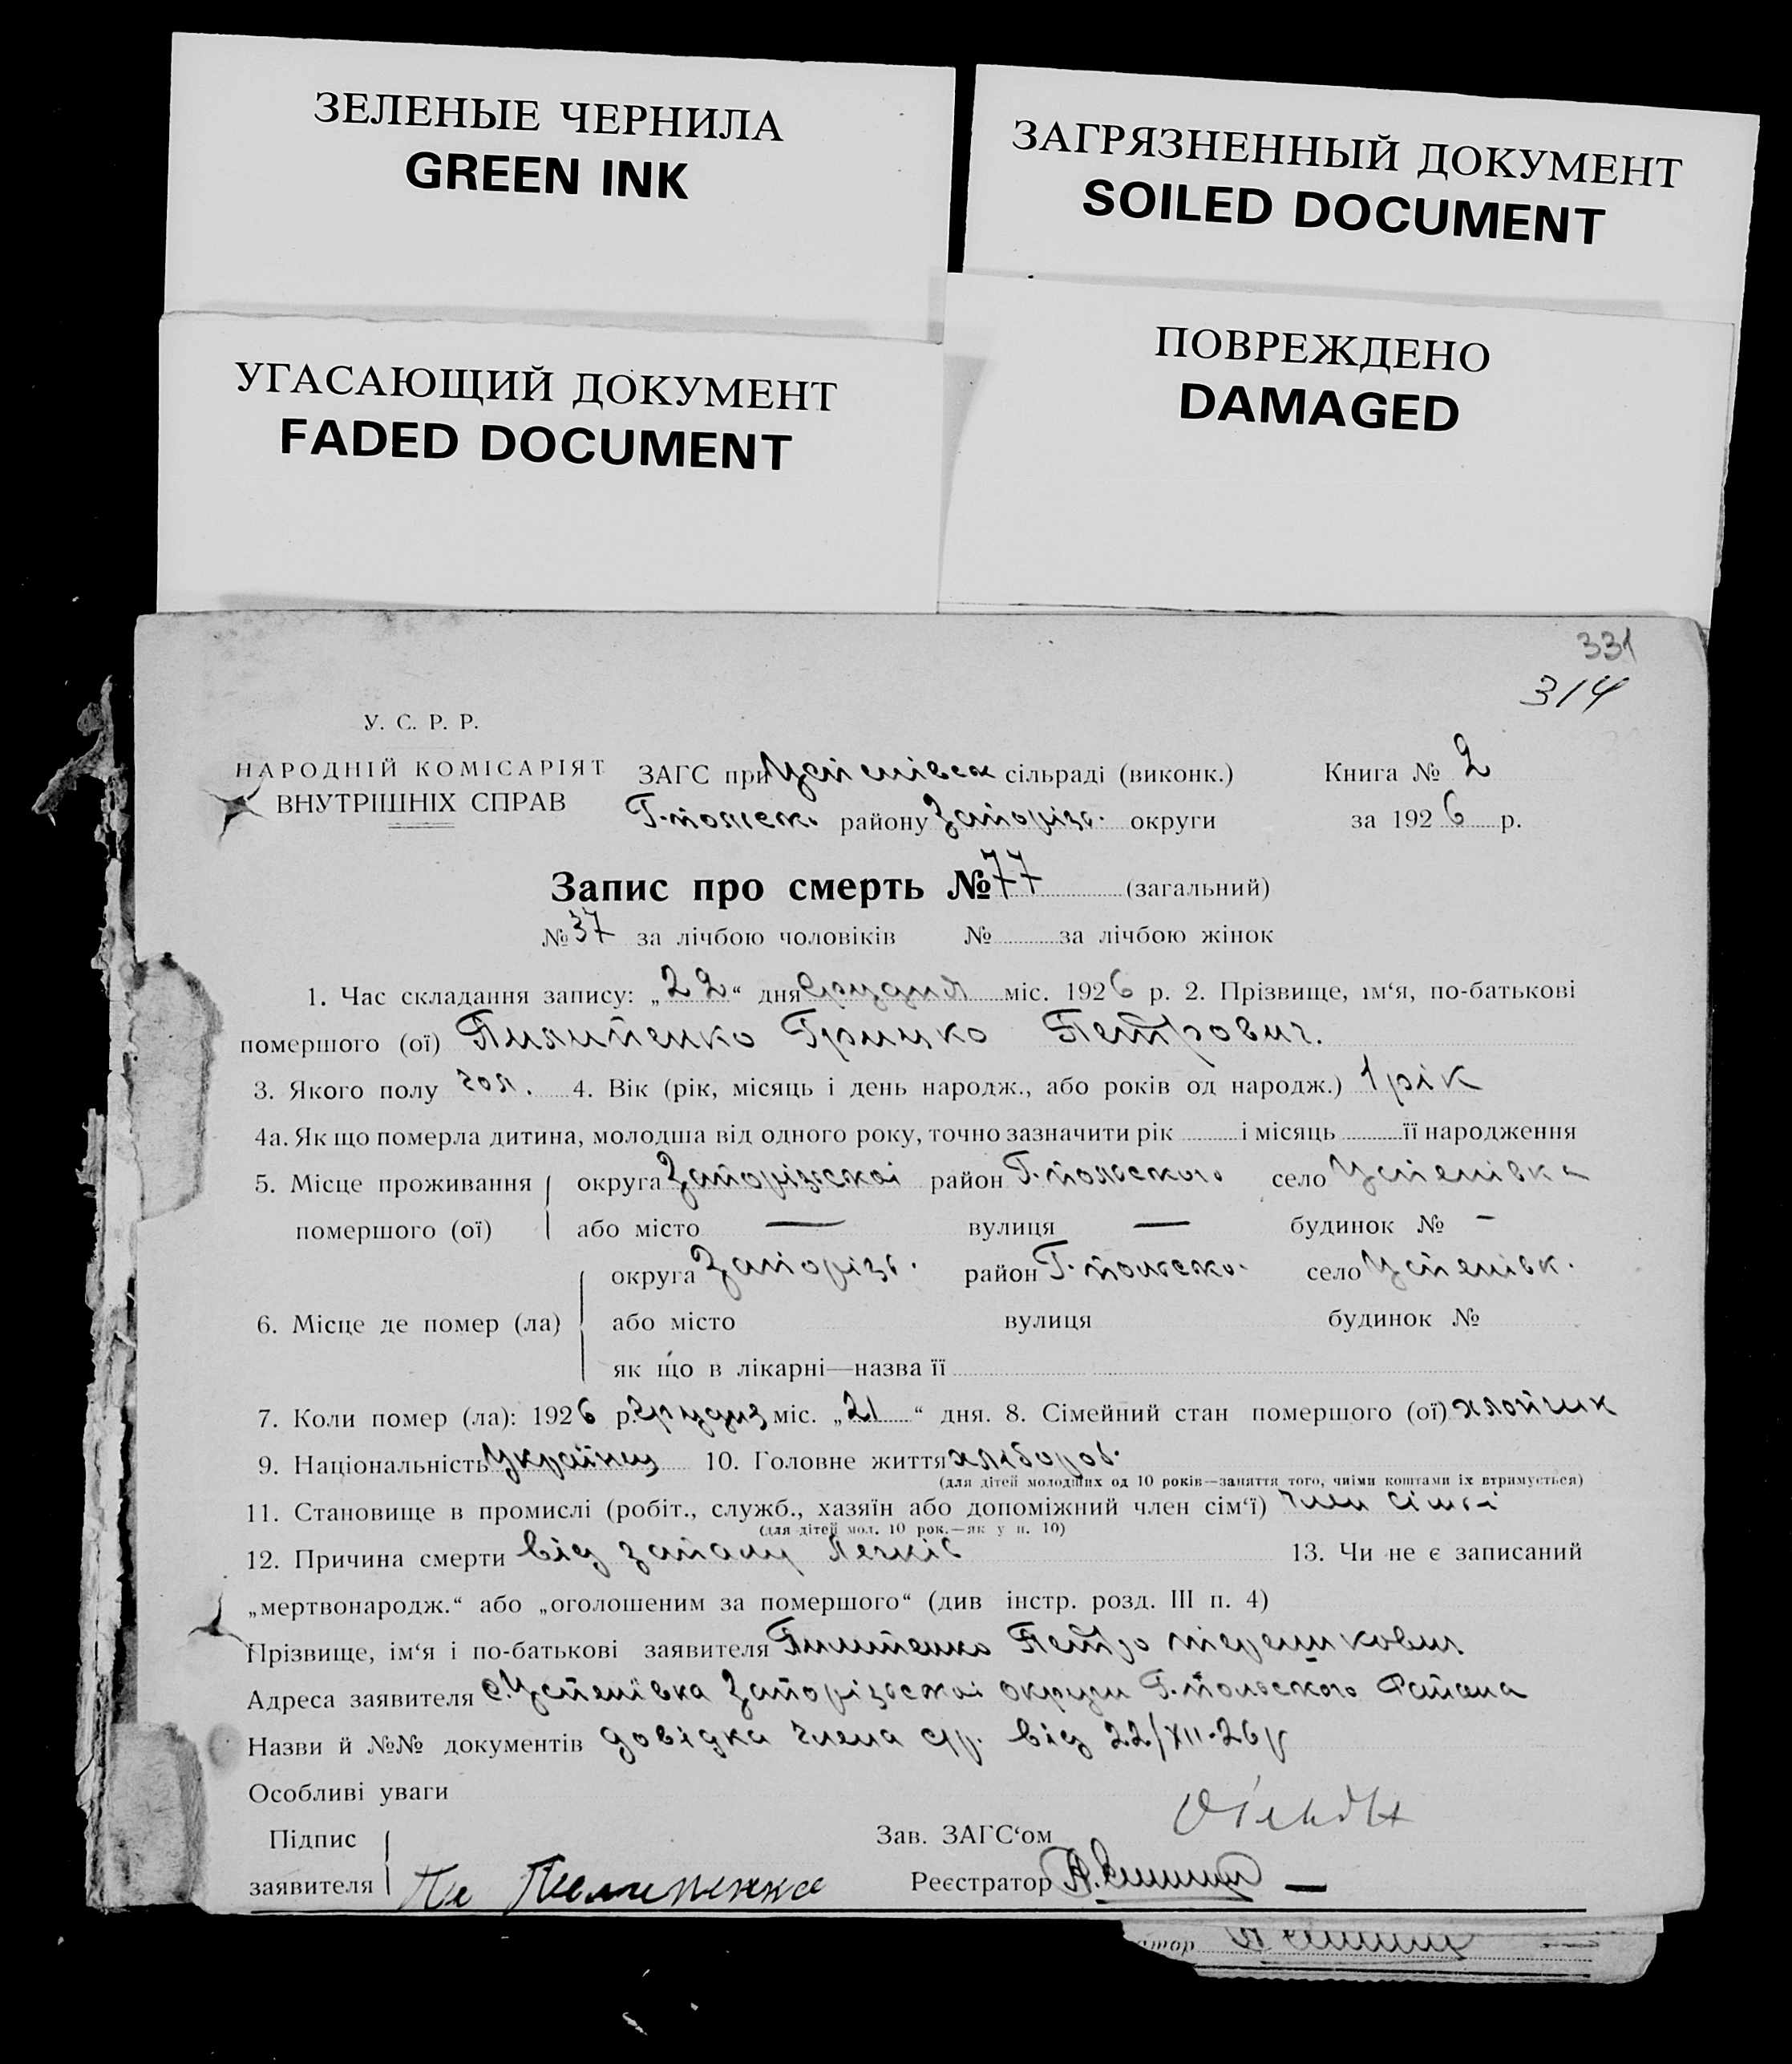 ЗЕЛЕНЫЕ ЧЕРНИЛА
GREEN INK
ЗАГРЯЗНЕННЫЙ ДОКУМЕНТ
SOILED DOCUMENT
УГАСАЮЩИЙ ДОКУМЕНТ
FADED DOCUMENT
ПОВРЕЖДЕНО
DAMAGED
331
314
У. С. Р. Р.
НАРОДНІЙ КОМІСАРІЯТ
ВНУТРІШНІХ СПРАВ
ЗАГС при Успенівск сільраді (виконк.)
Г-польск. району Запорізь. округи
Книга № 2
за 1926 р.
Запис про смерть № 77 (загальний)
№ 37 за лічбою чоловіків № за лічбою жінок
1. Час складання запису: „22“ дня Грудня міс. 1926 р. 2. Прізвище, ім‘я, по-батькові
помершого (ої) Пилипенко Грицко Петрович.
3. Якого полу чол. 4. Вік (рік, місяць і день народж., або років од народж.) 1 рік
4а. Як що померла дитина, молодша від одного року, точно зазначити рік і місяць її народження
5. Місце проживання округа Запорізької район Г-польского село Успенівка
помершого (ої) або місто — вулиця — будинок № -
округа Запорізь. район Г-польско. село Успенівк.
6. Місце де помер (ла) або місто вулиця будинок №
як що в лікарні—назва її
7. Коли помер (ла): 1926 р. Грудня міс. „21“ дня. 8. Сімейний стан помершого (ої) хлопчик
9. Національність Українец 10. Головне життя хлібороб.
(для дітей молодших од 10 років—заняття того, чиїми коштами їх втримується)
11. Становище в промислі (робіт., служб., хазяїн або допоміжний член сім‘ї) член сімьі
(для дітей мол. 10 рок.—як у п. 10)
12. Причина смерти від запалу легкіх 13. Чи не є записаний
„мертвонародж.“ або „оголошеним за помершого“ (див інстр. розд. III п. 4)
Прізвище, ім‘я і по-батькові заявителя Пилипенко Петро
Адреса заявителя с. Успенівка Запорізької округи Г-польского Району
Назви й №№ документів довідка члена с/р. від 22/XII-26р
Особливі уваги
Підпис
заявителя Пе Пелипенко
Зав. ЗАГС‘ом
Реєстратор